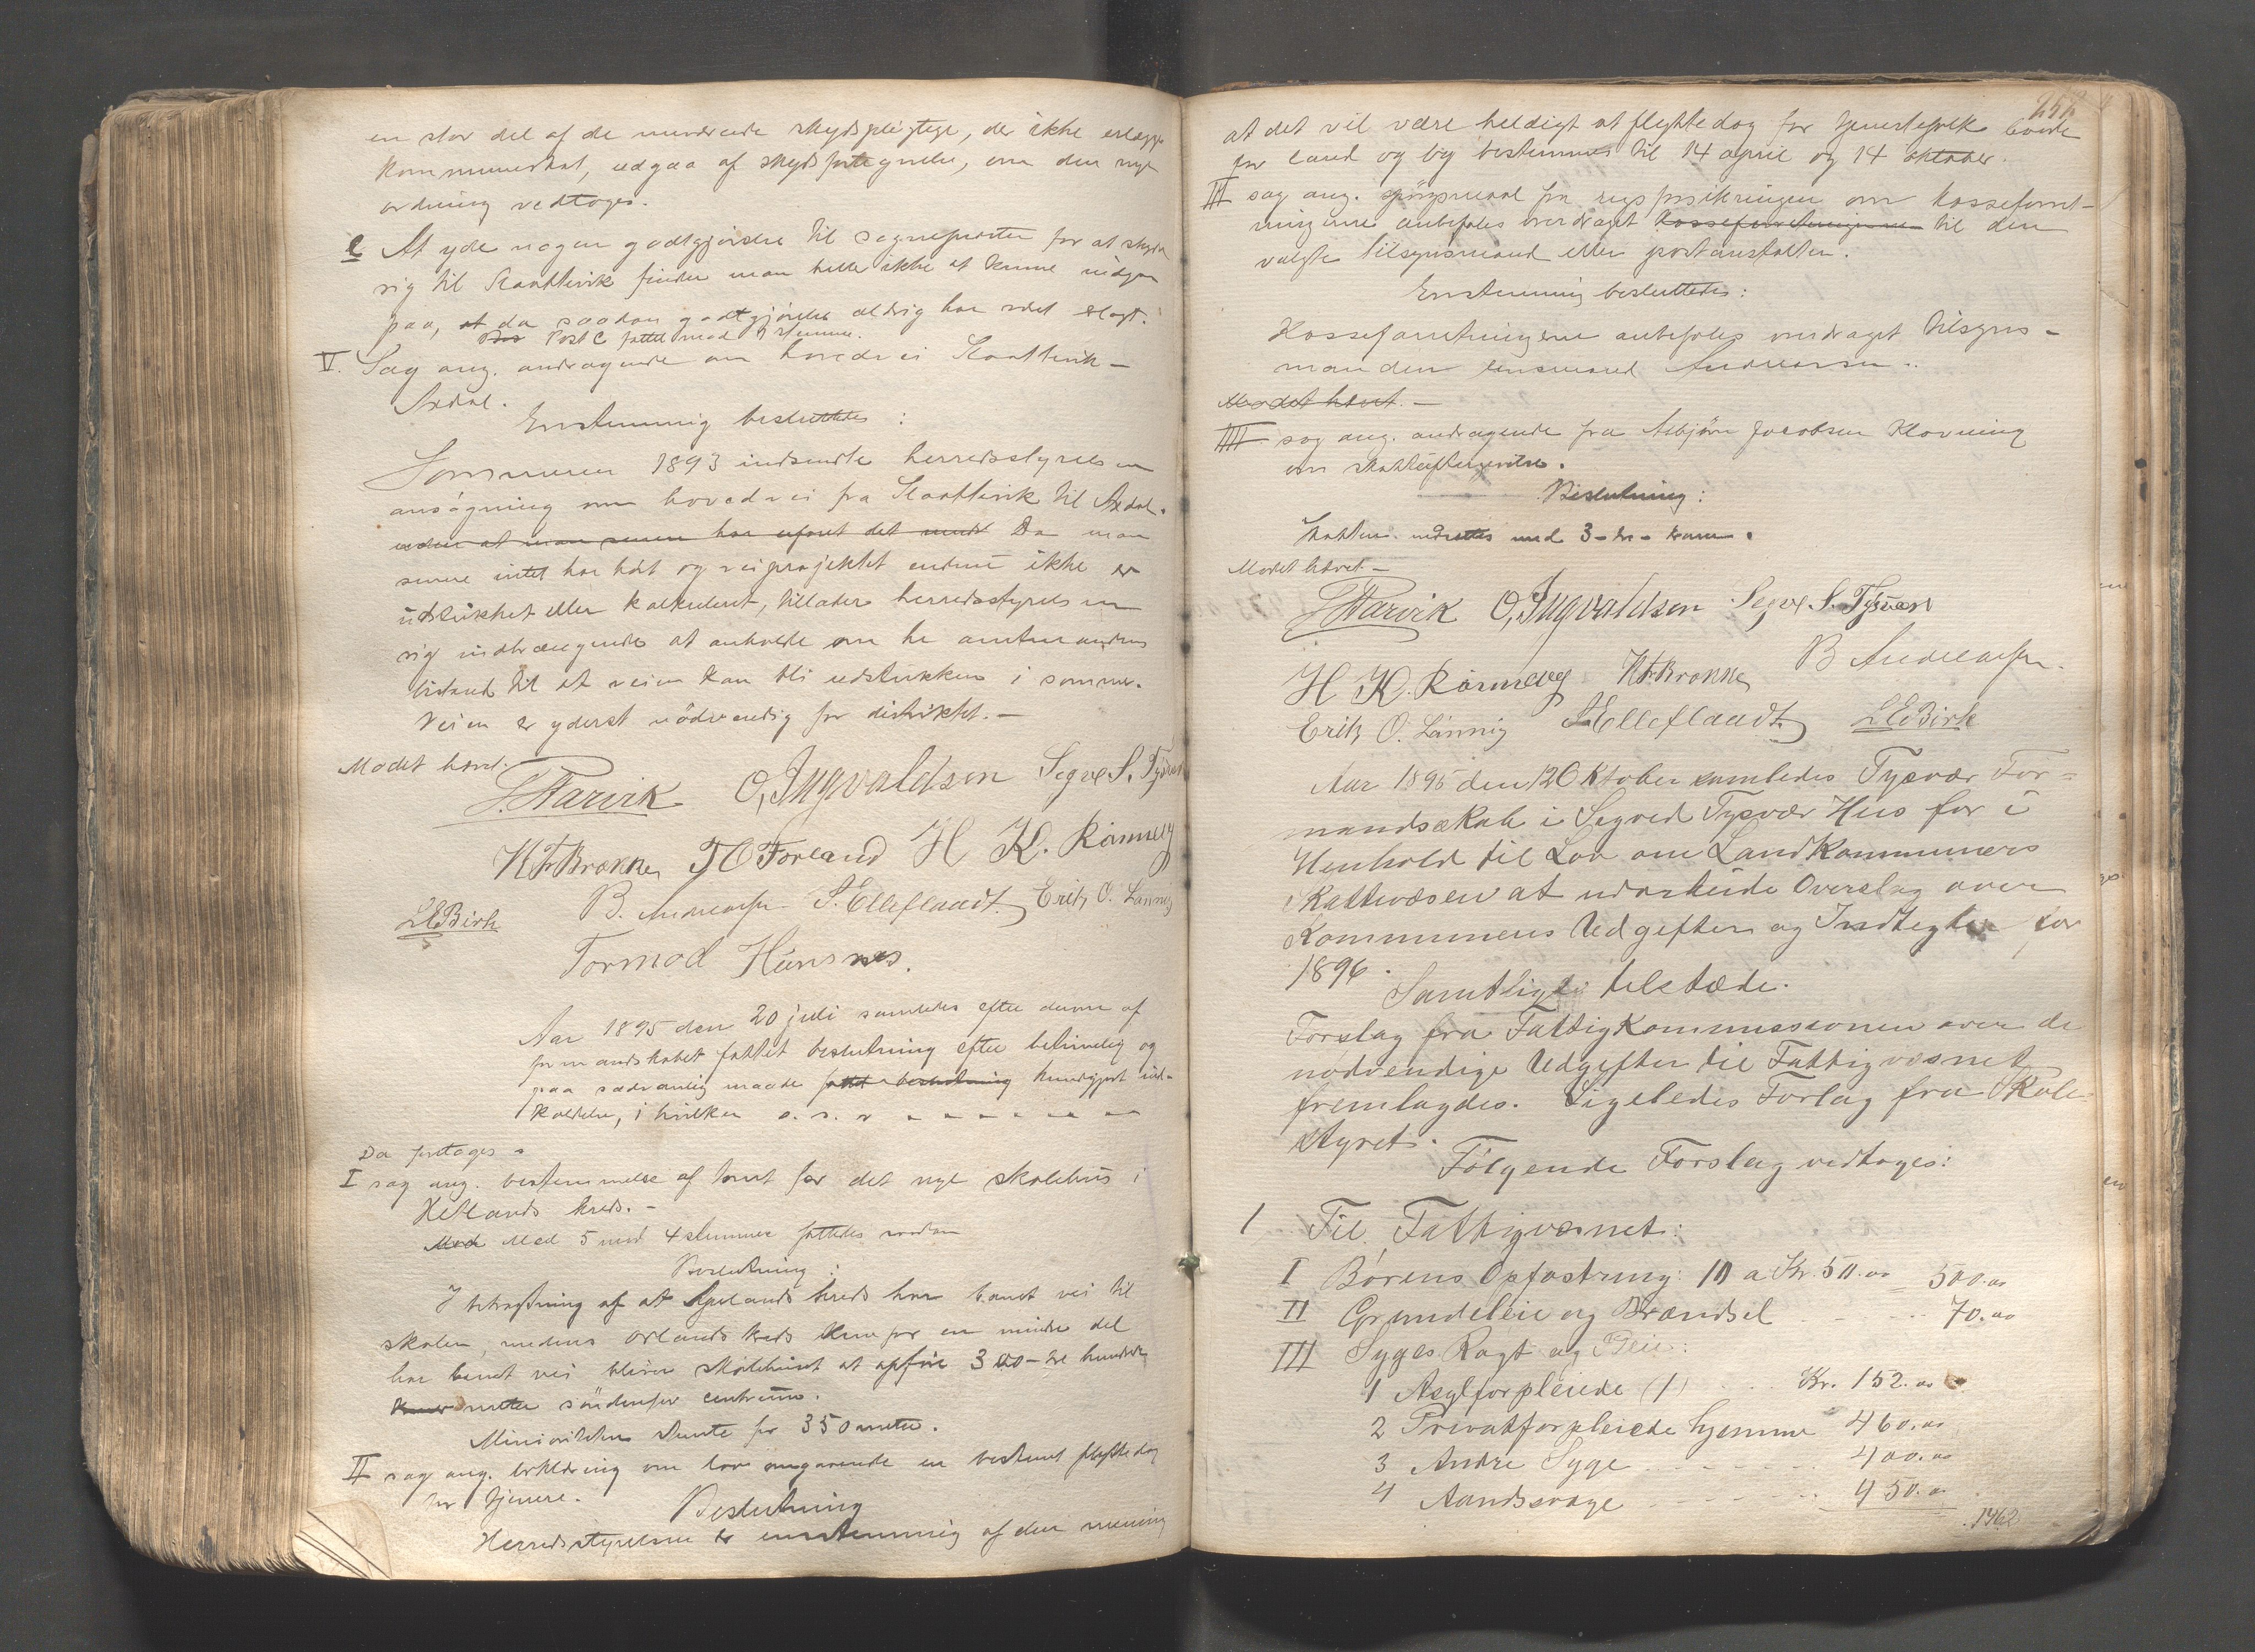 en stor del af de nuværende skydspligtige, der ikke erlægge
kommuneskat, udgaa af skydsfortegnelse, om den nye
ordning vedtoges.
c At yde nogen godtgjørelse til sogneprästen for at skyds
sig til Slaattevik finder man heller ikke at kunne indgaa
paa, at da saadan godtgjörelse aldrig har vdet
Post C fattet med 1 stemme.
V. Sag ang. andragende om hovedvei Slaattevik -
Axdal.
Enstemmig besluttedes :
Sommeren 1893 indsendte herredsstyrelsen
ansögning om hovedvei fra Slaattevik til Axdal.
uden at man senere har det Da man
senere intet har hört og veiprojektet endnu ikke er
udstukket eller kalkuleret, tillader herredsstyrelsen
sig indtrængende at anholde om hr amtmandens
bistand til at veien kan bli udstukken i sommer.
Veien er yderst nödvendig for distriktet. -
Mødet hævet.
Warvik O. Ingvaldsen Segve S. Tysvær
H F Brokne T O Førland H K. Rönnevg
B. Andreassen S. Elleflaadt. Erik O. Lanning
L E Birk
Tormod Hunsnes.
Aar 1895 den 20 juli samledes efter denne af
formandskabet fattet beslutning efter betimelig og
paa sædvanlig maade fattet beslutning kundgjort ind-
kaldelse, i hvilken o. s. v
Da foretoges
I sag ang. bestemmelse af tomt for det nye skolehus i
Hetlands kreds. -
Med Med 5 mod 4 stemmer fattedes saadan
Beslutning :
I betragtning af at kreds har banet vei til
skolen, medens Ørlands kreds kun for en mindre del
har banet vei bliver skolehuset at opføre 300 - tre hundrede
meter söndenfor centrum.
Minoriteten stemte for 350 meter.
II sag ang. erklæring om lov angaaende en bestemt flyttedag
for tjenere.
Beslutning
Herredsstyrelsen er enstemmig af den mening
252
at det vil være heldigt at flyttedag for tjenestefolk baade
for land og by bestemmes til 14 april og 14 oktober.
III sag ang. spörgsmaal fra rigsforsikringen om kasseforret-
ningerne anbefales overdraget kasseforretningerne til den
valgte tilsynsmand eller postanstalten.
Enstemmig besluttedes :
Kasseforretningerne anbefales overdraget tilsyns-
manden lensmand Andreassen.
Mødet hævet. -
IIII sag ang. andragende fra Asbjörn Jacobsen Klovning
om skatteeftergivelse.
Beslutning :
Skatten nedsættes med 3 - tre - kroner.
Mødet hævet. -
Warvik O. Ingvaldsen Segve S. Tysvær
H K. Rönnevg H F Brokne B Andreassen.
Erik O. Lanning S. Elleflaadt. L E Birk
Aar 1895 den 12 Oktober samledes Tysvær For=
mandsskab i Sigved Tysvær Hus for i
Henhold til Lov om Landkommuners
Skattevæsen at udarbeide Overslag over
Kommunens Udgifter og Indtegter for
1896.
Samtlige tilstæde.
Forslag fra Fattigkommissionen over de
nødvendige Udgifter til Fattigvæsnet
fremlagdes. Ligeledes Forlag fra Skole-
styret.
Følgende Forslag vedtages:
1 Til Fattigvæsnet:
I Børns Opfostring: 10 a Kr. 50.00 500.00
II Grundeleie og Brændsel 70.00
III Syges Røgt og Pleie:
1 Asylforpleiede (1) Kr. 152.00
2 Privatforpleiede hjemme 460.00
3 Andre Syge 400.00
4 Aandssvage 450.00
1462